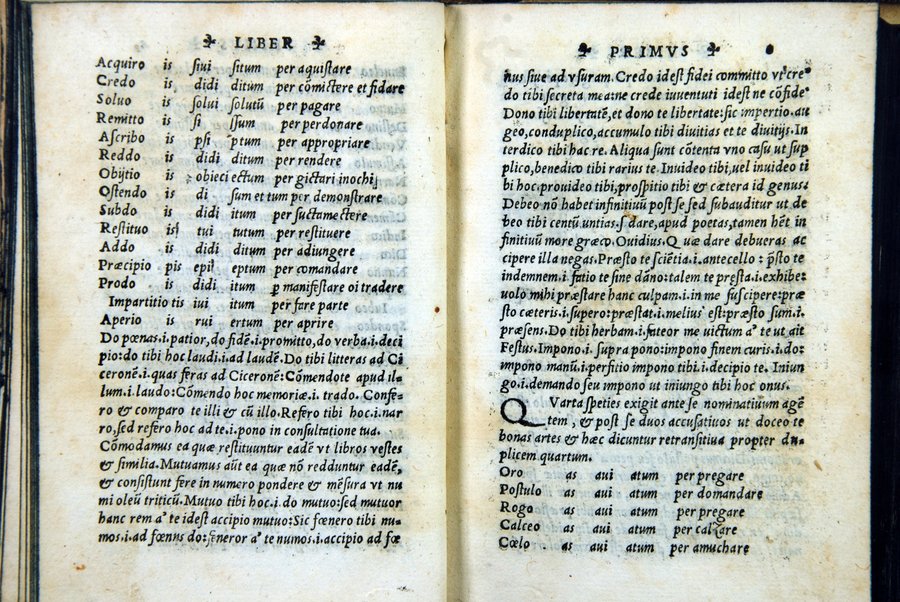 LIBER
Acquiro is siui situm per aquistare
Credo is didi ditum per cōmictere et fidare
Soluo is solui solutū per pagare
Remitto is si ssum per perdonare
Ascribo is psi ptum per appropriare
Reddo is didi ditum per rendere
Obijtio is obieci ectum per gictari inochi
Ostendo is di sum et tum per demonstrare
Subdo is didi itum per suctamectere
Restituo is tui tutum per restituere
Addo is didi ditum per adiungere
Præcipio pis epi eptum per comandare
Prodo is didi itum ꝑ manifestare oi tradere
Impartitio tis iui itum per fare parte
Aperio is rui ertum per aprire
Do pœnas.i.patior,do fidē.i.promitto,do verba.i.deci
pio:do tibi hoc laudi.i.ad laudē.Do tibi litteras ad Ci
ceronē:i.quas feras ad Ciceronē:Cōmendote apud il-
lum.i.laudo:Cōmendo hoc memoriæ.i. trado. Confe-
ro & comparo te illi & cū illo.Refero tibi hoc.i.nar
ro,sed refero hoc ad te.i.pono in consultatione tua.
Cōmodamus ea quæ restituuntur eadē vt libros vestes
& similia.Mutuamus aūt ea quæ nō redduntur eadē,
& consistunt fere in numero pondere & mēsura vt nu
mi oleū triticū.Mutuo tibi hoc.i.do mutuo:sed mutuor
hanc rem a᾽ te idest accipio mutuo:Sic fœnero tibi nu-
mos.i.ad fœnus do:fœneror a᾽ te numos.i.accipio ad fœ
PRIMVS
nus siue ad vsuram. Credo idest fidei committo vt cre-
do tibi secreta mea:ne crede iuuentuti idest ne cōfide
Dono tibi libertatē,et dono te libertate:sic impertio,au
geo,conduplico,accumulo tibi diuitias et te diuitijs. In
terdico tibi hac re. Aliqua sunt cōtenta vno casu ut sup
plico,benedico tibi rarius te. Inuideo tibi,uel inuideo ti
bi hoc.prouideo tibi,prospitio tibi & cætera id genus.
Debeo nō habet infinitiuū post se sed subauditur ut de
beo tibi centū.untias.s dare,apud poetas,tamen hēt in
finitiuū more græco.Ouidius.Quæ dare debueras ac
cipere illa negas.Præsto te sciētia.i.antecello: p̄sto te
indemnem.i.fatio te sine dāno:talem te presta.i.exhibe:
uolo mihi præstare hanc culpam.i.in me suscipere:præ
sto cæteris.i.supero:præstat.i.melius est:præsto sum.i.
præsens.Do tibi herbam.i.fateor me uictum a᾽ te ut ait
Festus.Impono.i. supra pono:impono finem curis.i.do:
impono manū.i.perfitio impono tibi.i.decipio te. Iniun
go.i.demando seu impono ut iniungo tibi hoc onus.
QVarta speties exigit ante se nominatiuum agē
tem, & post se duos accusatiuos ut doceo te
bonas artes & hæc dicuntur retransitiua propter du-
plicem quartum.
Oro as aui atum per pregare
Postulo as aui atum per domandare
Rogo as aui atum per pregare
Calceo as aui atum per calzare
Cœlo as aui atum per amuchare